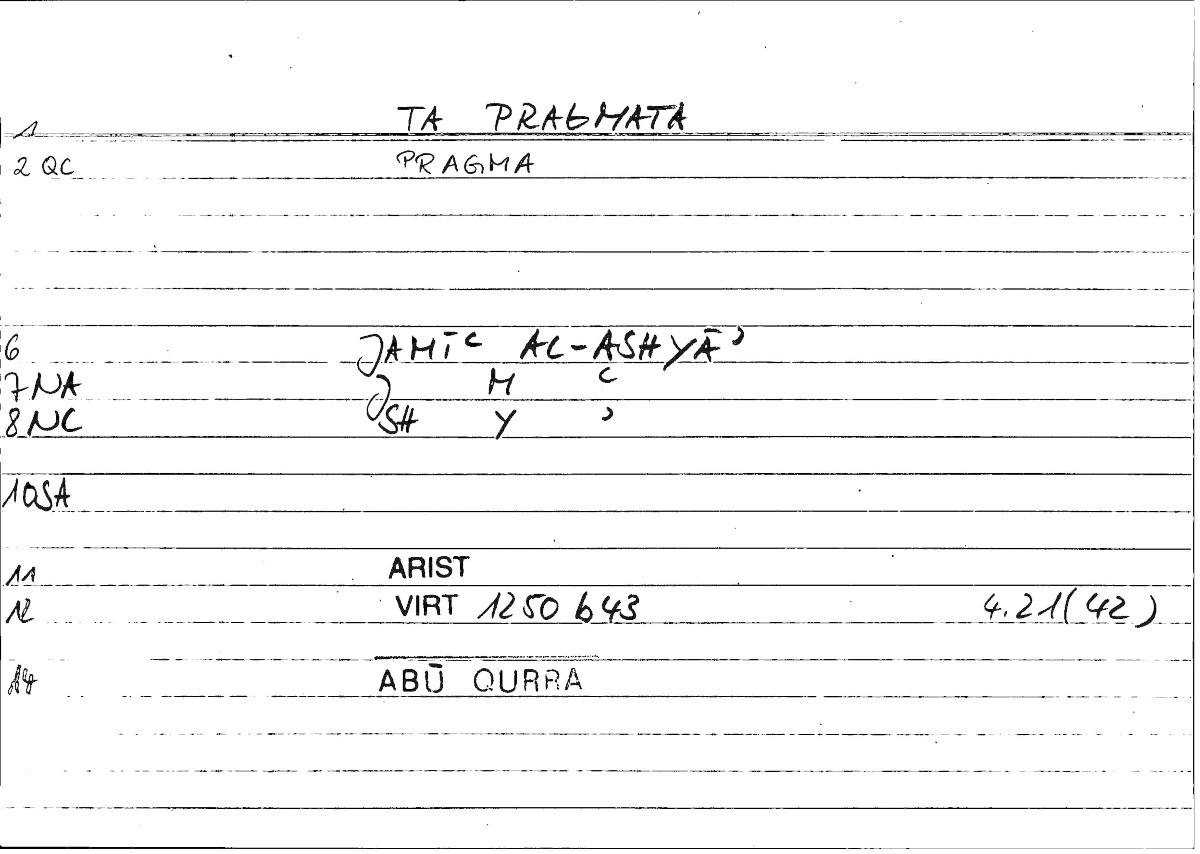 1 TA PRAGMATA
2 QC PRAGMA
6 JAMĪʿ AL-ASHYĀʾ
7 NA J M ʿ
8 NC SH Y ʾ
10 SA
11 ARIST
12 VIRT 1250 b 43 4.21(42)
14 ABŪ QURRA